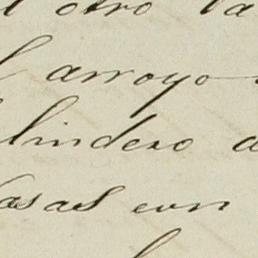 otro la
arroyo
lindero
casas con